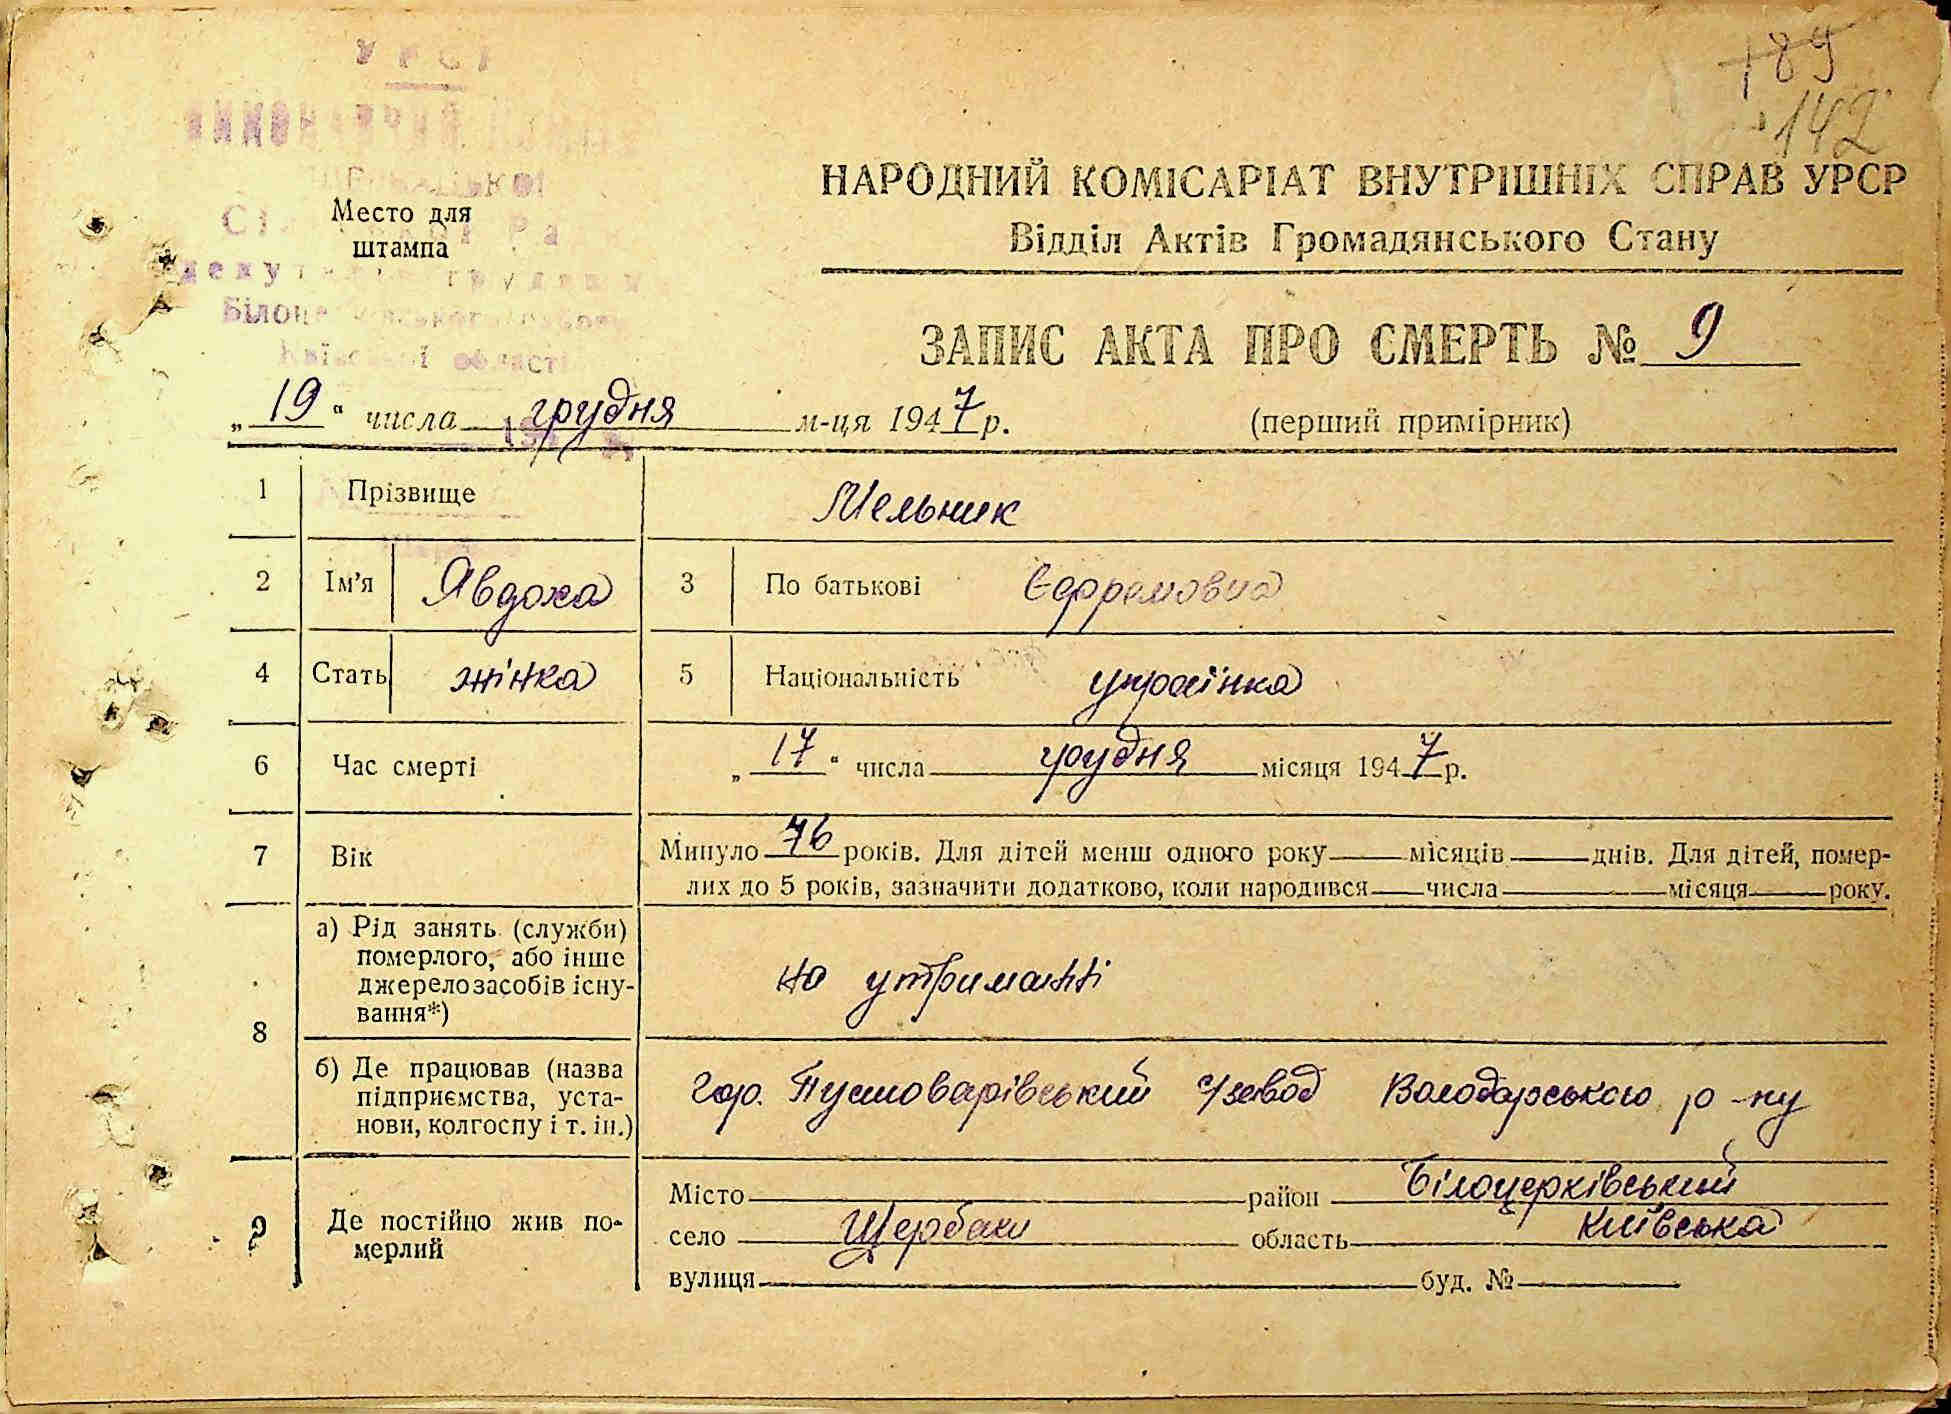 УРСР
189
142
НАРОДНИЙ КОМІСАРІАТ ВНУТРІШНІХ СПРАВ УРСР
Відділ Актів Громадянського Стану
Место для
штампа
Київської області
ЗАПИС АКТА ПРО СМЕРТЬ № 9
„19“ числа грудня м-ця 1947 р. (перший примірник)
1 Прізвище Мельник
2 Ім'я Явдоха 3 По батькові Єфремовна
4 Стать жінка 5 Національність українка
6 Час смерті „17“ числа грудня місяця 1947 р.
7 Вік Минуло 76 років. Для дітей менш одного року місяців днів. Для дітей, помер-
лих до 5 років, зазначити додатково, коли народився числа місяця року.
8 а) Рід занять (служби)
померлого, або інше
джерело засобів існу-
вання*) на утриманні
б) Де працював (назва
підприємства, уста-
нови, колгоспу і т. ін.) Пустоварівський с/завод Володарського р-ну
9 Де постійно жив по-
мерлий
Місто район Білоцерківський
село Щербаки область Київська
вулиця буд. №